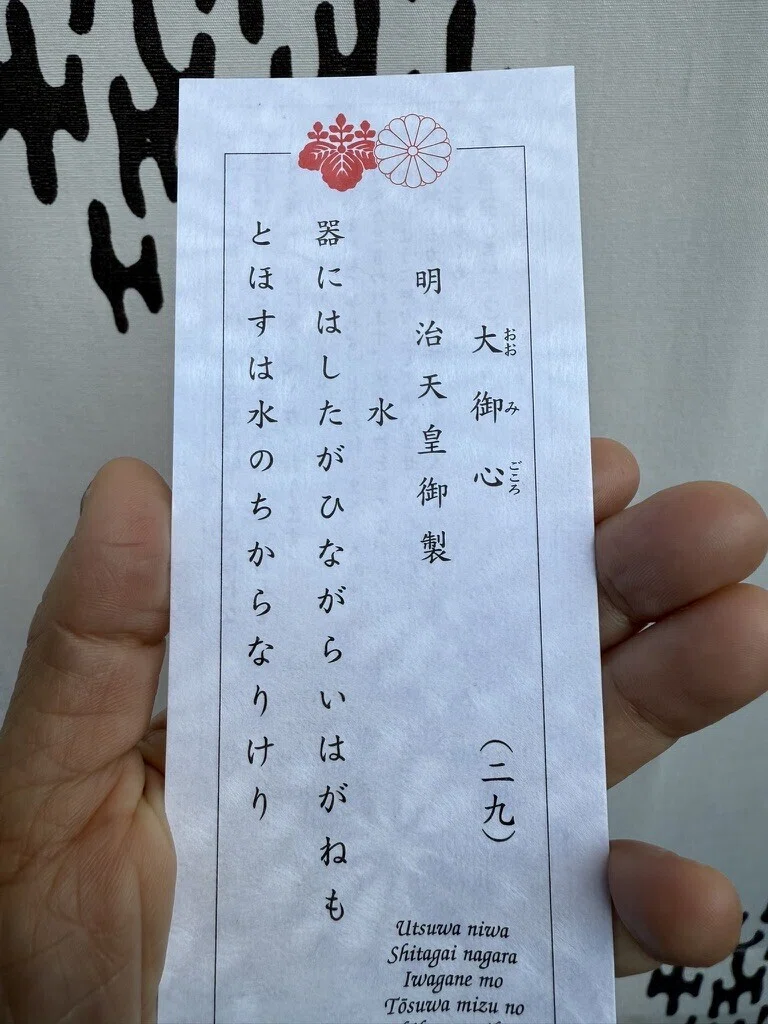 大御心
おおみごころ
（二九）
明治天皇御製
水
器にはしたがひながらいはがねも
とほすは水のちからなりけり
Utsuwa niwa
Shitagai nagara
Iwagane mo
Tōsuwa mizu no